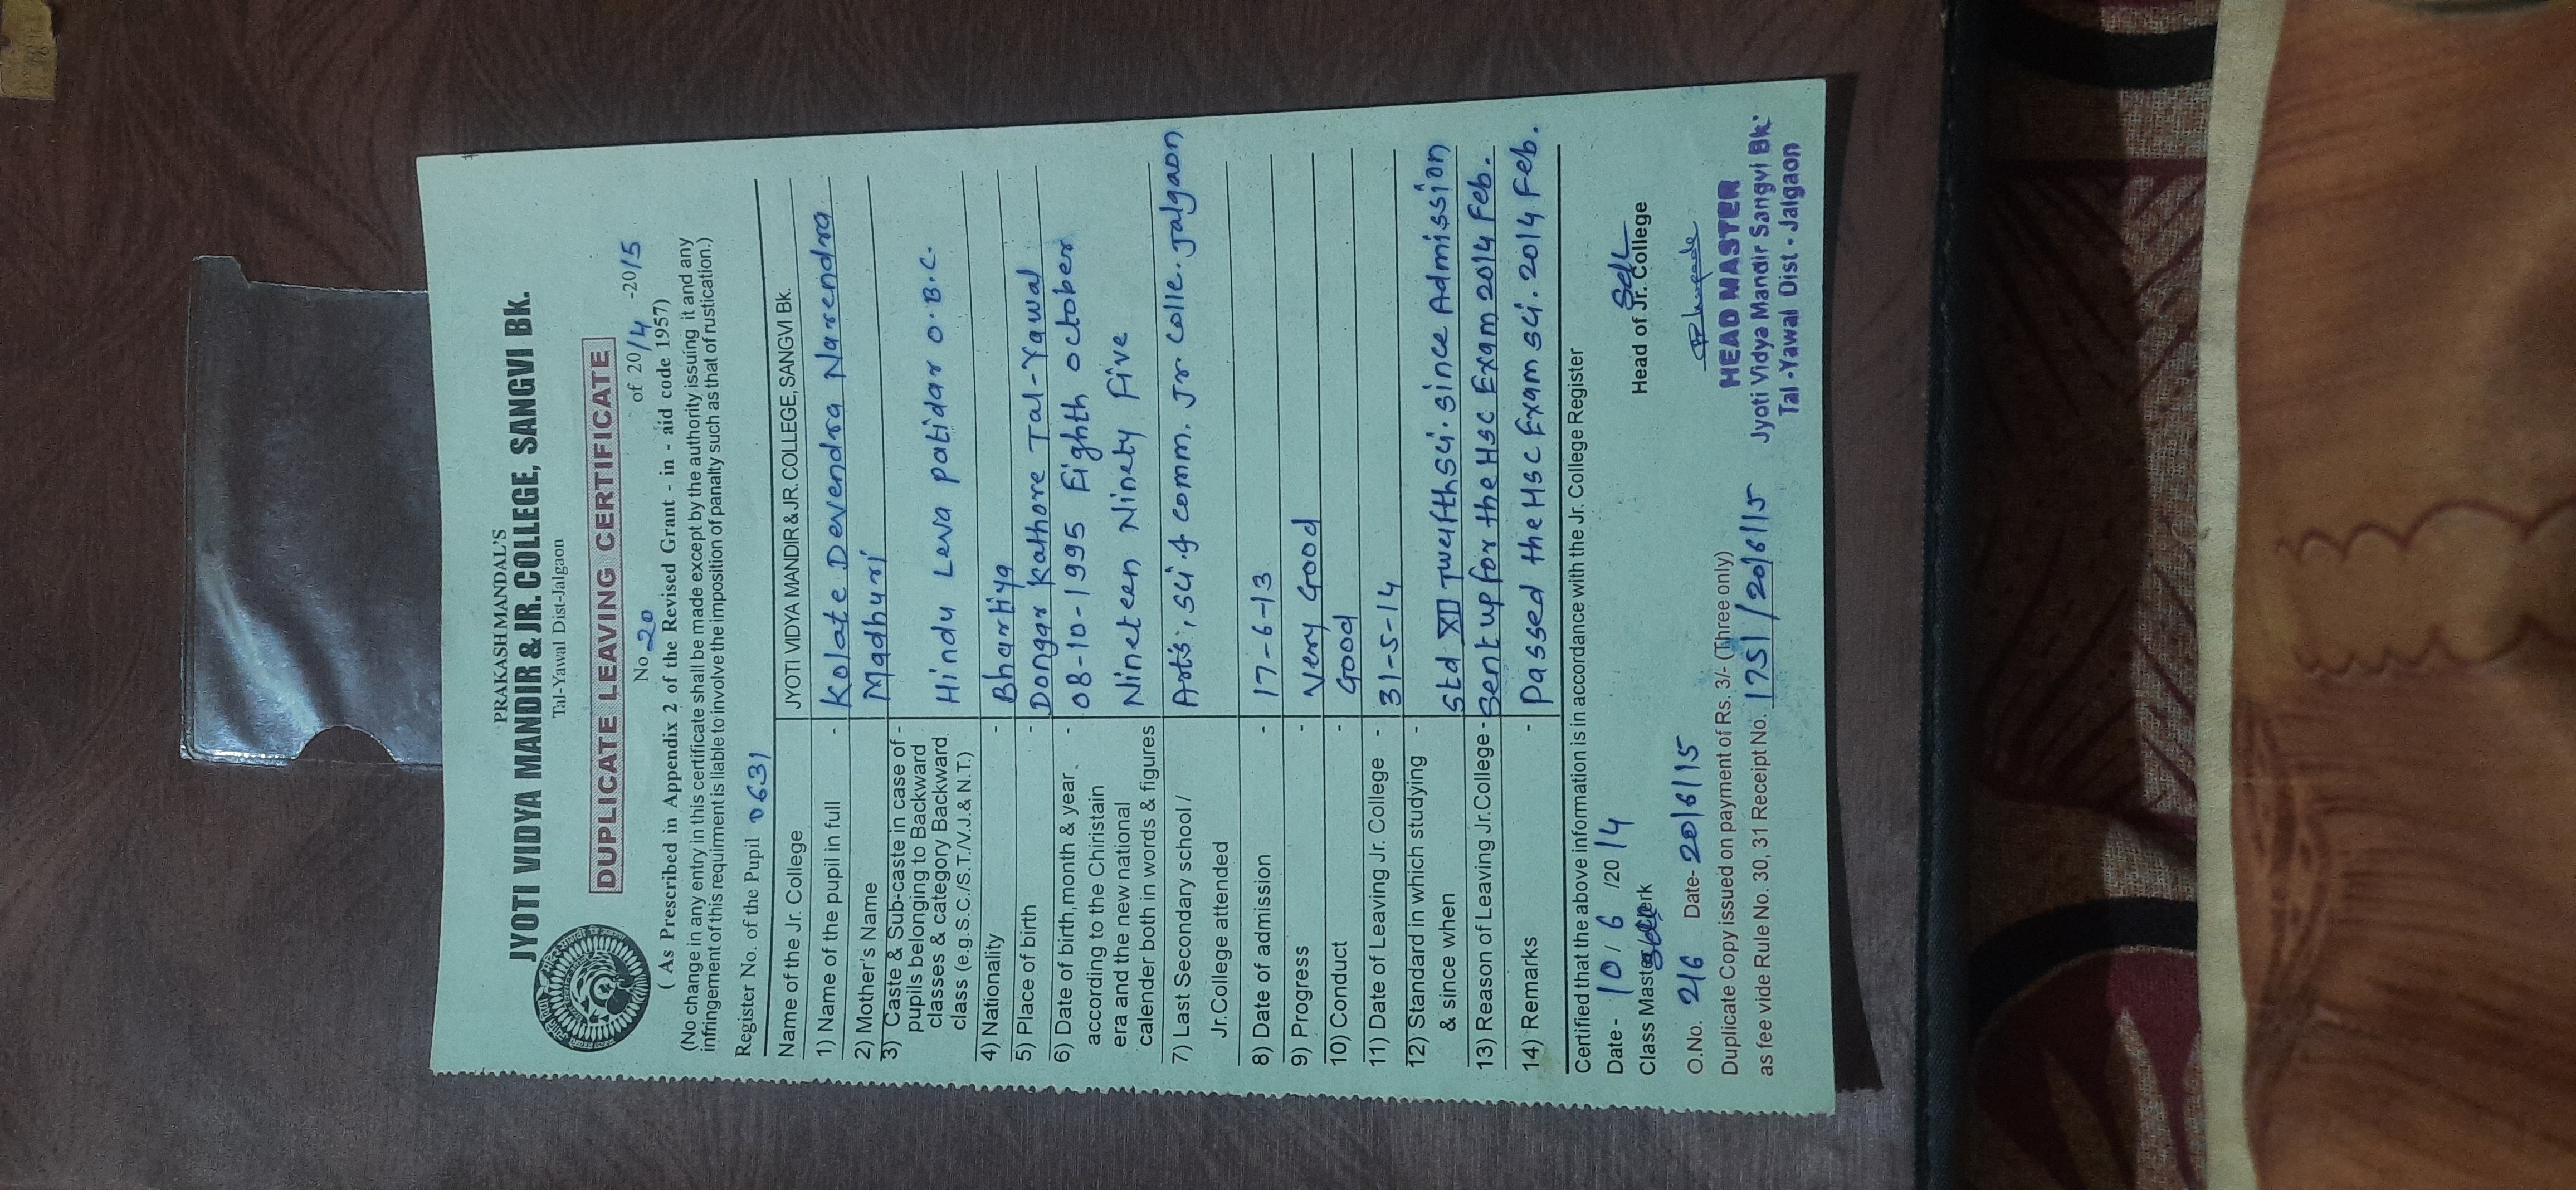 PRAKASH MANDAL'S
JYOTI VIDYA MANDIR & JR. COLLEGE, SANGVI BK.
Tal-Yawal Dist-Jalgaon
DUPLICATE LEAVING CERTIFICATE
No 20 of 2014 -2015
( As Prescribed in Appendix 2 of the Revised Grant - in - aid code 1957)
(No change in any entry in this certificate shall be made except by the authority issuing it and any
infringement of this requirment is liable to involve the imposition of panalty such as that of rustication.)
Register No. of the Pupil 0631
Name of the Jr. College JYOTI VIDYA MANDIR & JR. COLLEGE, SANGVI Bk.
1) Name of the pupil in full - Kolate Devendra Narendra
2) Mother's Name Madhuri
3) Caste & Sub-caste in case of -
pupils belonging to Backward
classes & category Backward Hindu Leva patidar O.B.C.
class (e.g.S.C./S.T./V.J.& N.T.)
4) Nationality - Bhartiya
5) Place of birth - Dongar Kathore Tal-Yawal
6) Date of birth,month & year - 08-10-1995 Eighth october
according to the Chiristain
era and the new national Nineteen Ninety Five
calender both in words & figures
7) Last Secondary school / Arts, Sci & Comm. Jr Colle. Jalgaon
Jr.College attended
8) Date of admission - 17-6-13
9) Progress - Very Good
10) Conduct - Good
11) Date of Leaving Jr. College - 31-5-14
12) Standard in which studying -
& since when Std XII Twelfth Sci. since Admission
13) Reason of Leaving Jr.College - Sent up for the HSC Exam 2014 Feb.
14) Remarks - Passed the HSC Exam Sci. 2014 Feb.
Certified that the above information is in accordance with the Jr. College Register
Date - 10/6/2014
Class Master Clerk Head of Jr. College
O.No. 216 Date- 20/6/15
Duplicate Copy issued on payment of Rs. 3/- (Three only)
as fee vide Rule No. 30, 31 Receipt No. 1751/20/6/15
HEAD MASTER
Jyoti Vidya Mandir Sangvi Bk
Tal -Yawal Dist - Jalgaon